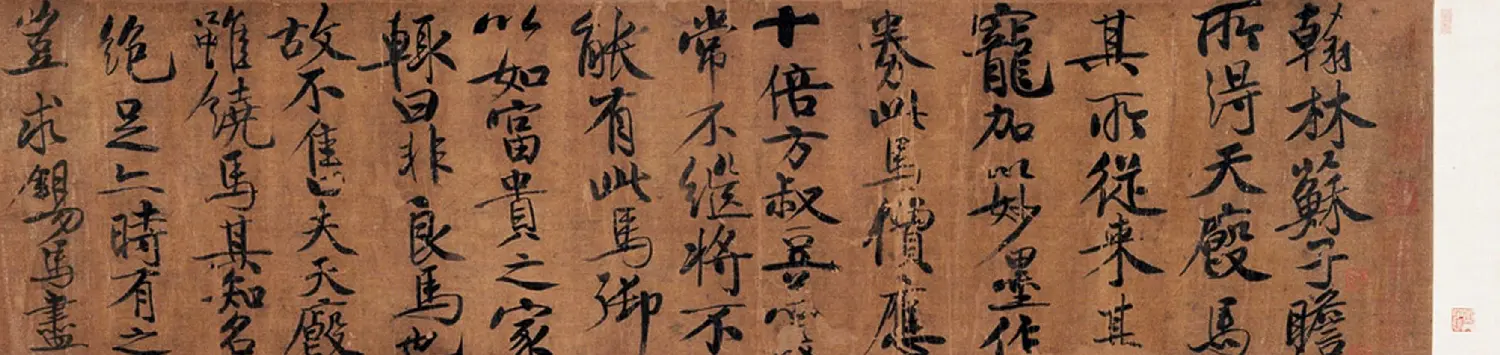 翰林蘇子瞻
所得天廄馬
其所從来甚
寵加以妙墨作
券此馬價應
十倍方叔豆羹
常不繼將不
能有此馬御
以如富貴之家
輒曰非良馬也
故不售夫天廄
雖饒馬其知名
絕足亦時有之
豈求錫馬盡